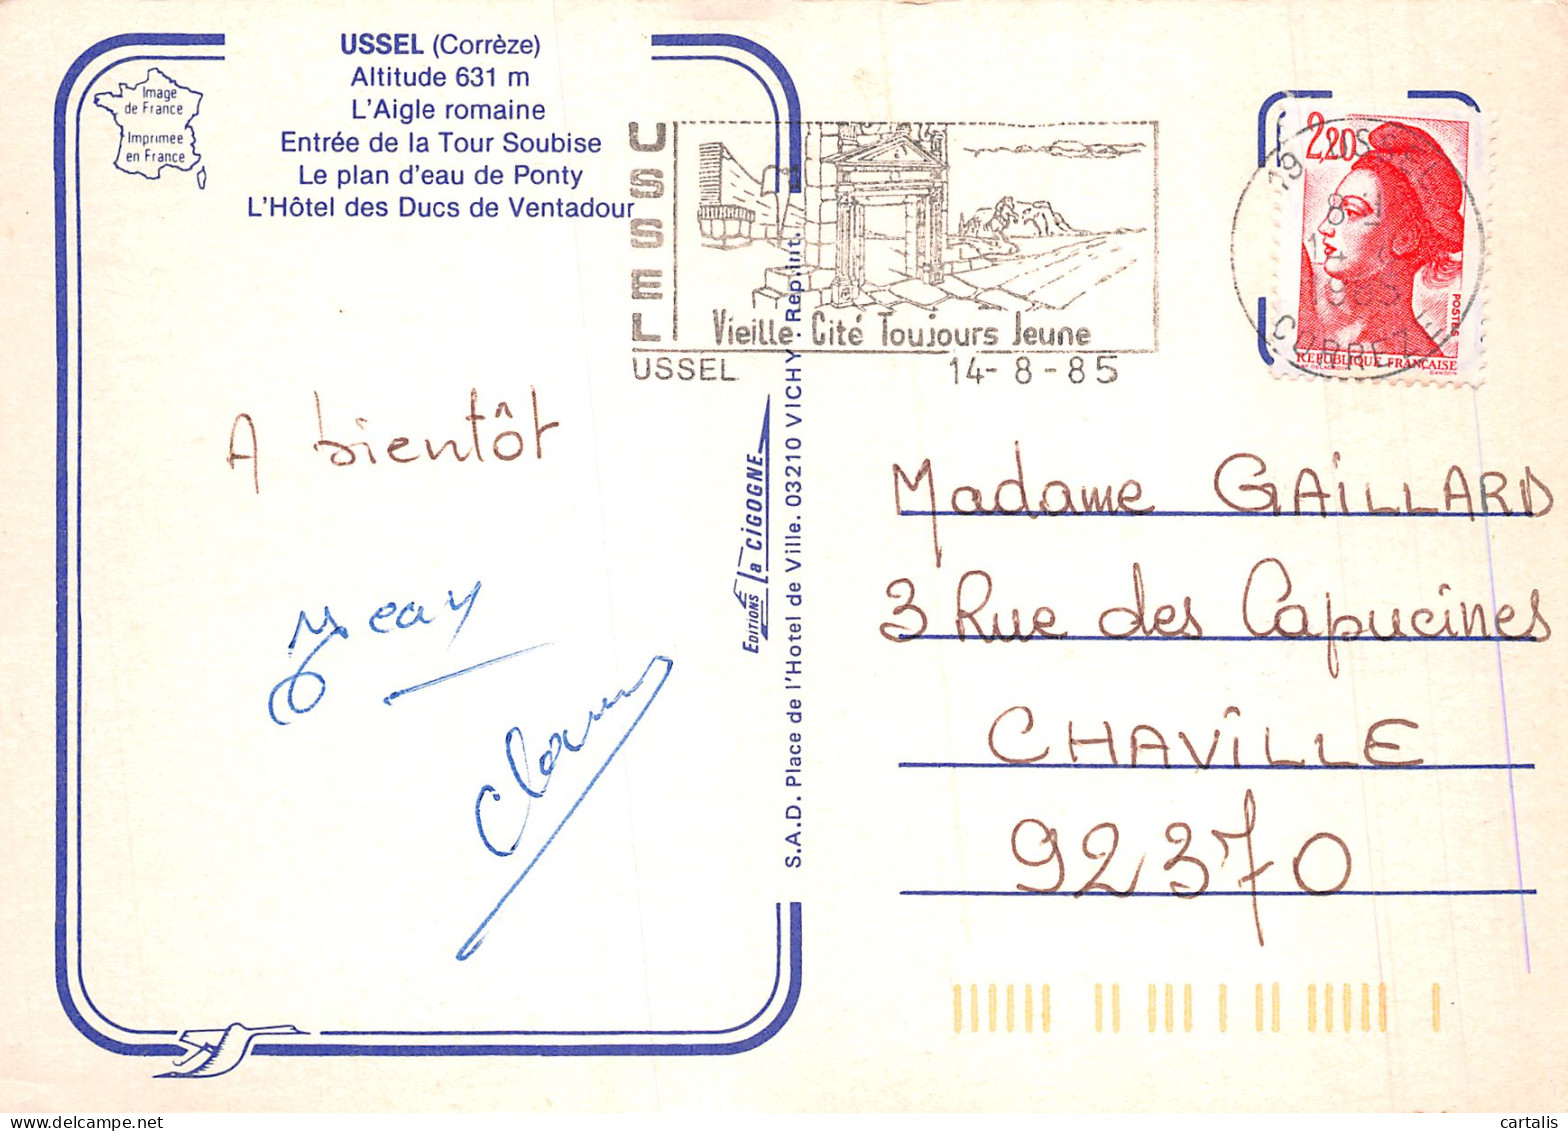 USSEL (Corrèze)
Altitude 631 m
L'Aigle romaine
Entrée de la Tour Soubise
Le plan d'eau de Ponty
L'Hôtel des Ducs de Ventadour
Image
de France
Imprimée
en France
USSEL
Vieille Cité Toujours Jeune
USSEL 14-8-85
2,20
POSTES
REPUBLIQUE FRANÇAISE
CORREZE
A bientôt
EDITIONS La CIGOGNE
S.A.D. Place de l'Hotel de Ville. 03210 VICHY. Rep. int.
Madame GAILLARD
3 Rue des Capucines
CHAVILLE
92370
cartalis